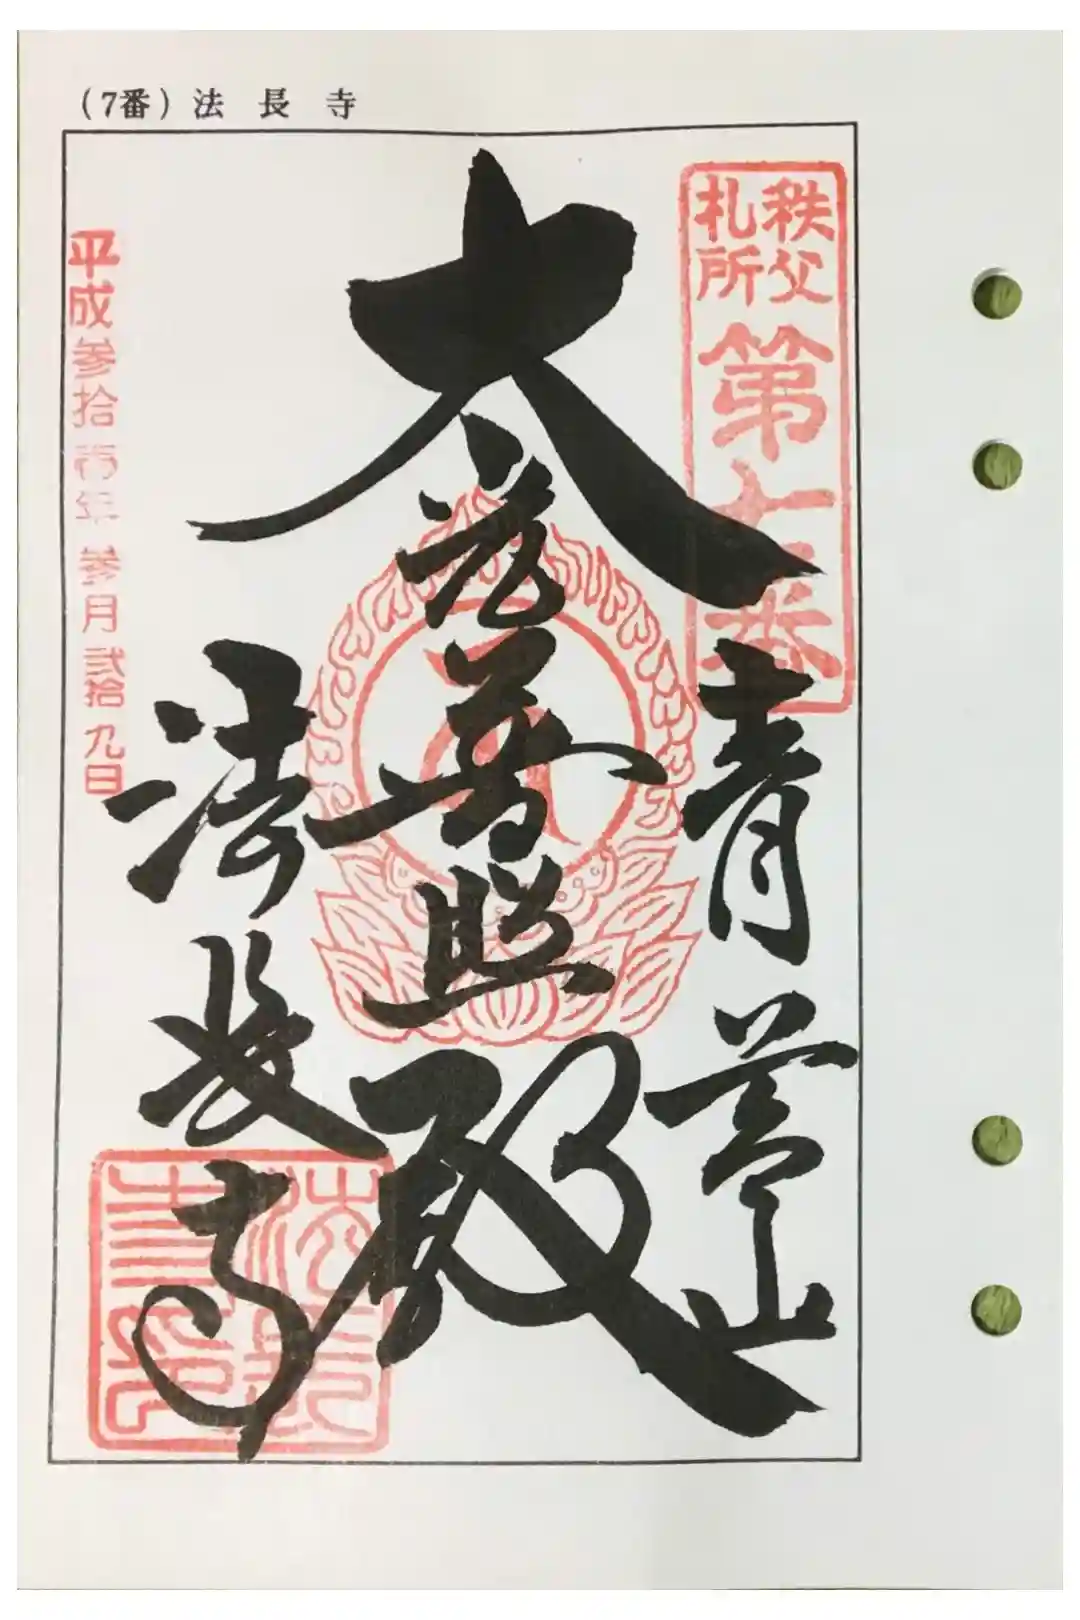 (7番) 法長寺
秩父
札所
第七番
青苔山
大慈普照殿
法長寺
平成参拾壱年参月弐拾九日